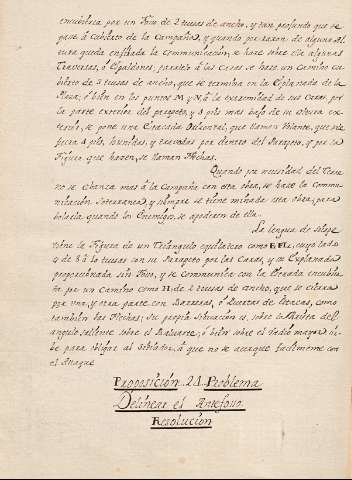 encubierta por un Foso de 2 tuesas de ancho, y tan profundo que se
pase á cubierto de la Campaña; y quando por razon de alguna al-
tura queda enfilada la communicacion, se hace sobre ella algunas
Traversas, ó Espaldones; paralelo á las Caras se hace un Camino cu-
bierto de 3 tuesas de ancho, que se termina en la Esplanada de la
Plaza; ó bien en los puntos M y N á la extremidad de sus Caras por
la parte exterior del parapeto, y 3 pies mas bajo de su altura ex-
terior, se pone una Estacada Orizontal, que llaman Volante, que sale
fuera 4 pies, hundidas, y travadas por dentro del Parapeto, y por la
Figura que hacen, se llaman Flechas.
Quando por necesidad del Terre-
no se abanza mas á la Campaña con esta obra, se hace la Commu-
nicación Soterranea, y siempre se tiene minada esta obra, para
bolarla quando los Enemigos, se apoderen de ella.
La lengua de Sierpe
tiene la Figura de un Triangulo equilatero como cuyo lado
y de 8 á 10 tuesas con su Parapeto por las Caras, y su Explanada
proporcionada sin Foso, y se communica con la Estrada encubier-
ta por un Camino como H, de 2 tuesas de ancho, que se cierra
por una, y otra parte con Barreras, ó Puertas de Estacas, como
tambien las Flechas: Su propia Situacion es, sobre la Punta del
angulo saliente sobre el Baluarte, ó bien sobre el Radio mayor; sir-
be para obligar al Sitiador á que no se acerque facilmente con
el Ataque
Proposición 21. Problema
Delinear el Antefoso.
Resolución